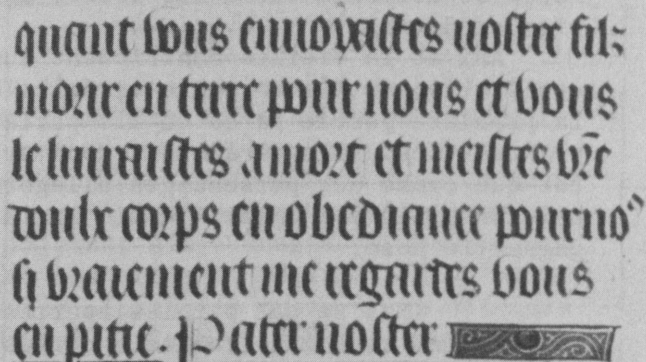 quant vous enuoyastes nostre filz
morir en terre pour nous et vous
le liurastes a mort et meistes vr̃e
doulx corps en obediance pour noꝰ
si vraiement me regardes vous
en pitie. Pater noster